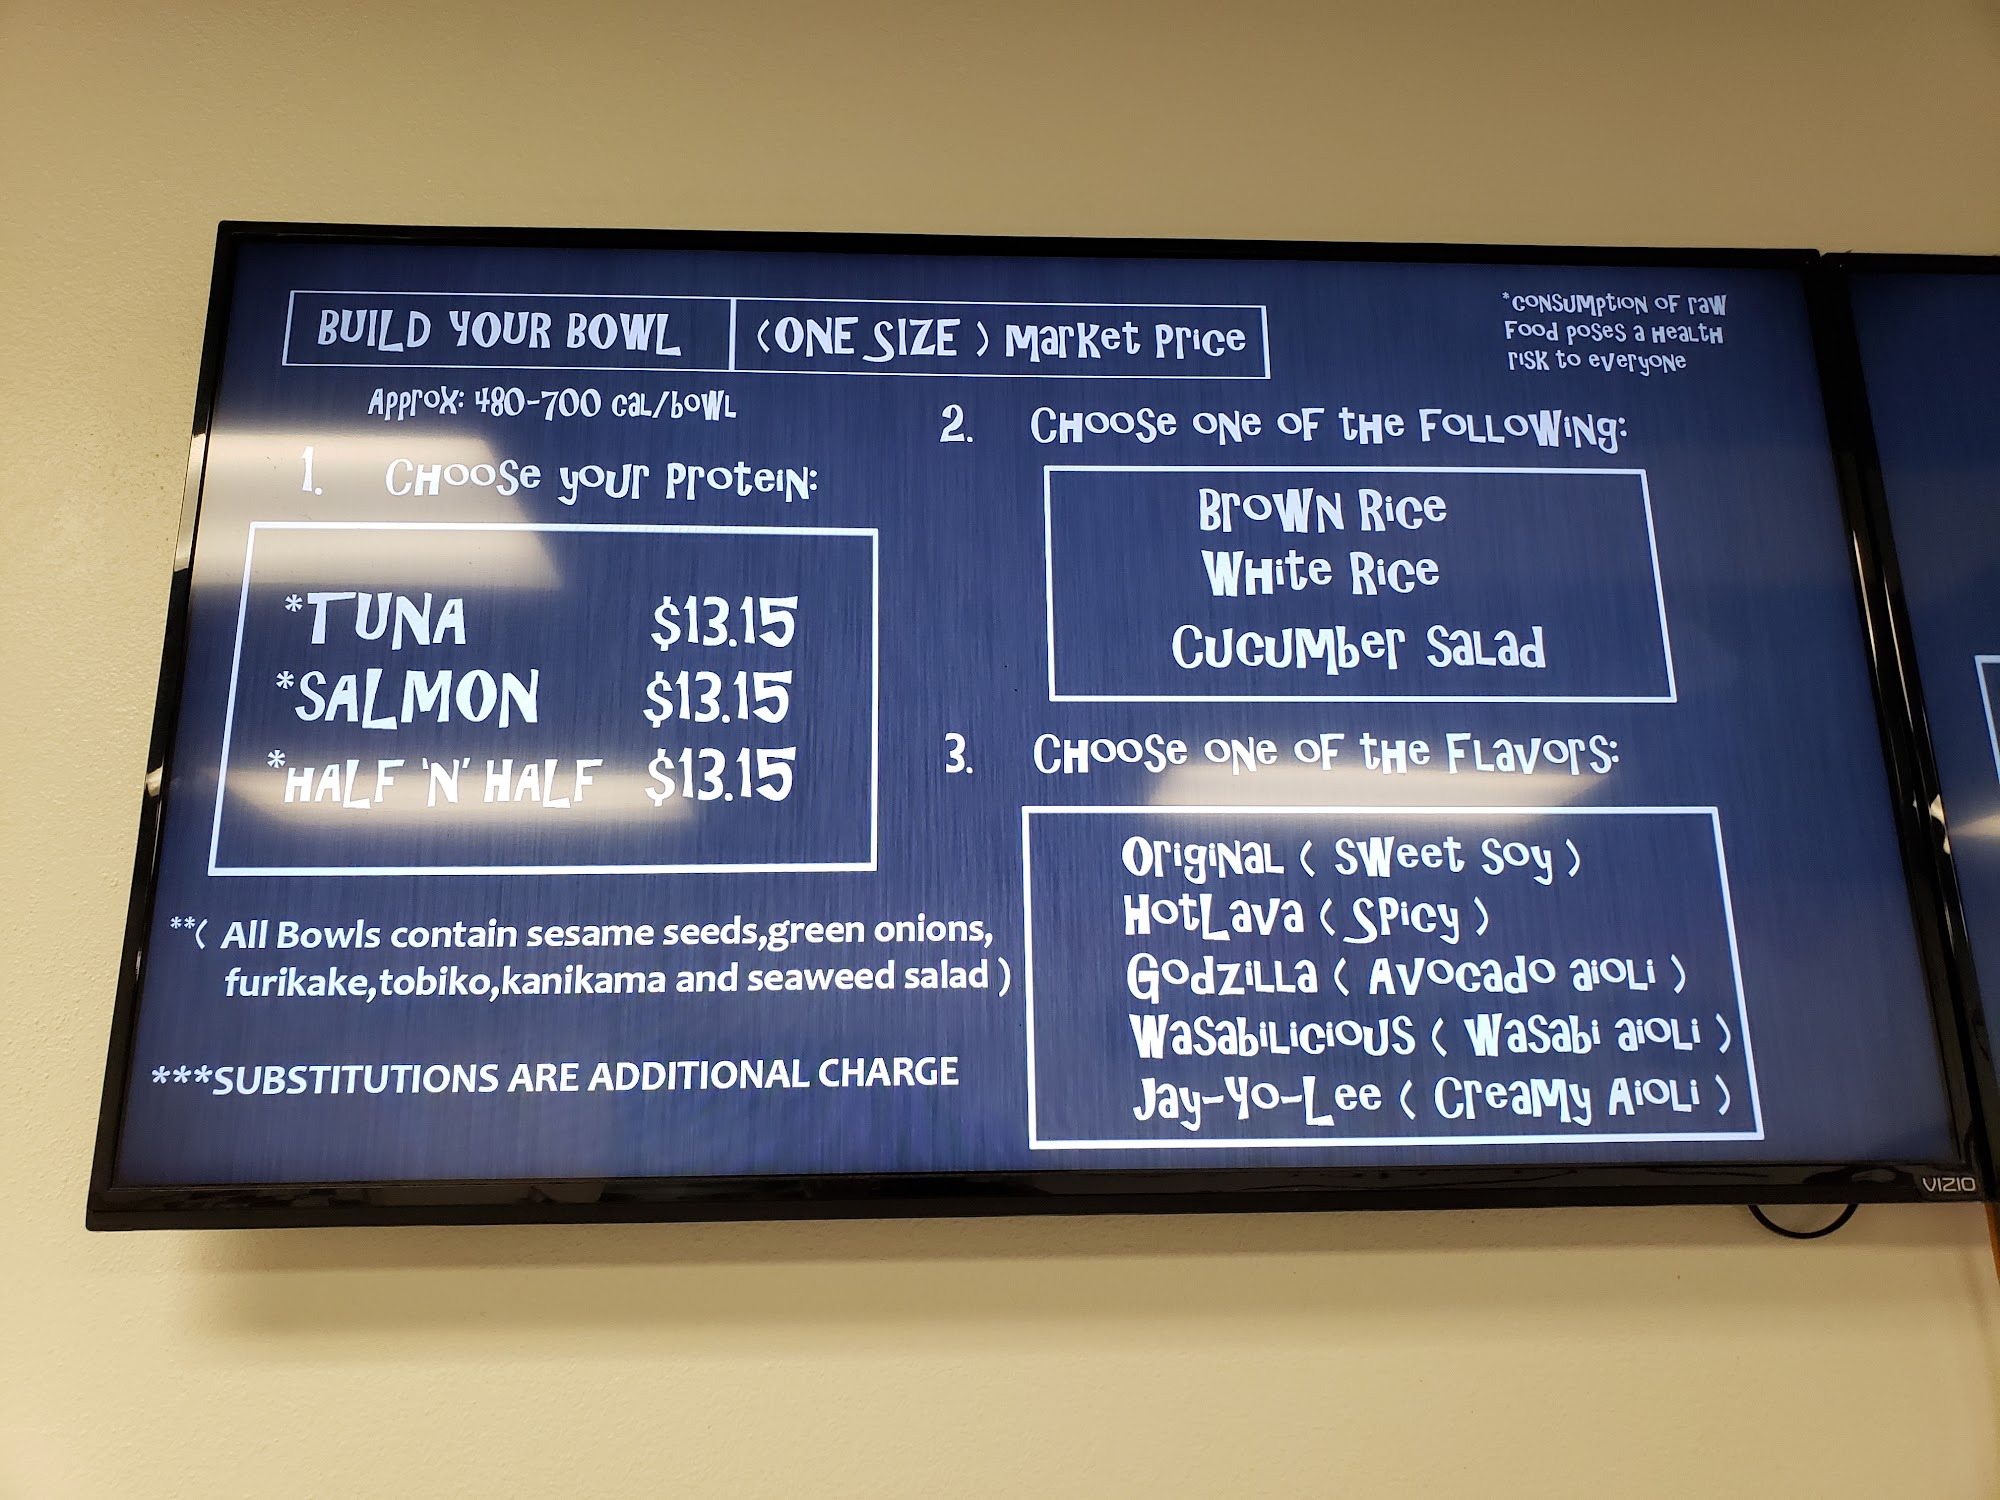 BUILD YOUR BOWL (ONE SIZE) Market Price
*Consumption of raw
Food poses a Health
risk to everyone
Approx: 480-700 cal/bowl
1. Choose your Protein:
*TUNA $13.15
*SALMON $13.15
*HALF 'N' HALF $13.15
**( All Bowls contain sesame seeds,green onions,
furikake,tobiko,kanikama and seaweed salad )
***SUBSTITUTIONS ARE ADDITIONAL CHARGE
2. Choose one of the Following:
Brown Rice
White Rice
Cucumber Salad
3. Choose one of the Flavors:
Original ( Sweet Soy )
HotLava ( Spicy )
Godzilla ( Avocado aioli )
Wasabilicious ( Wasabi aioli )
Jay-Yo-Lee ( Creamy Aioli )
VIZIO